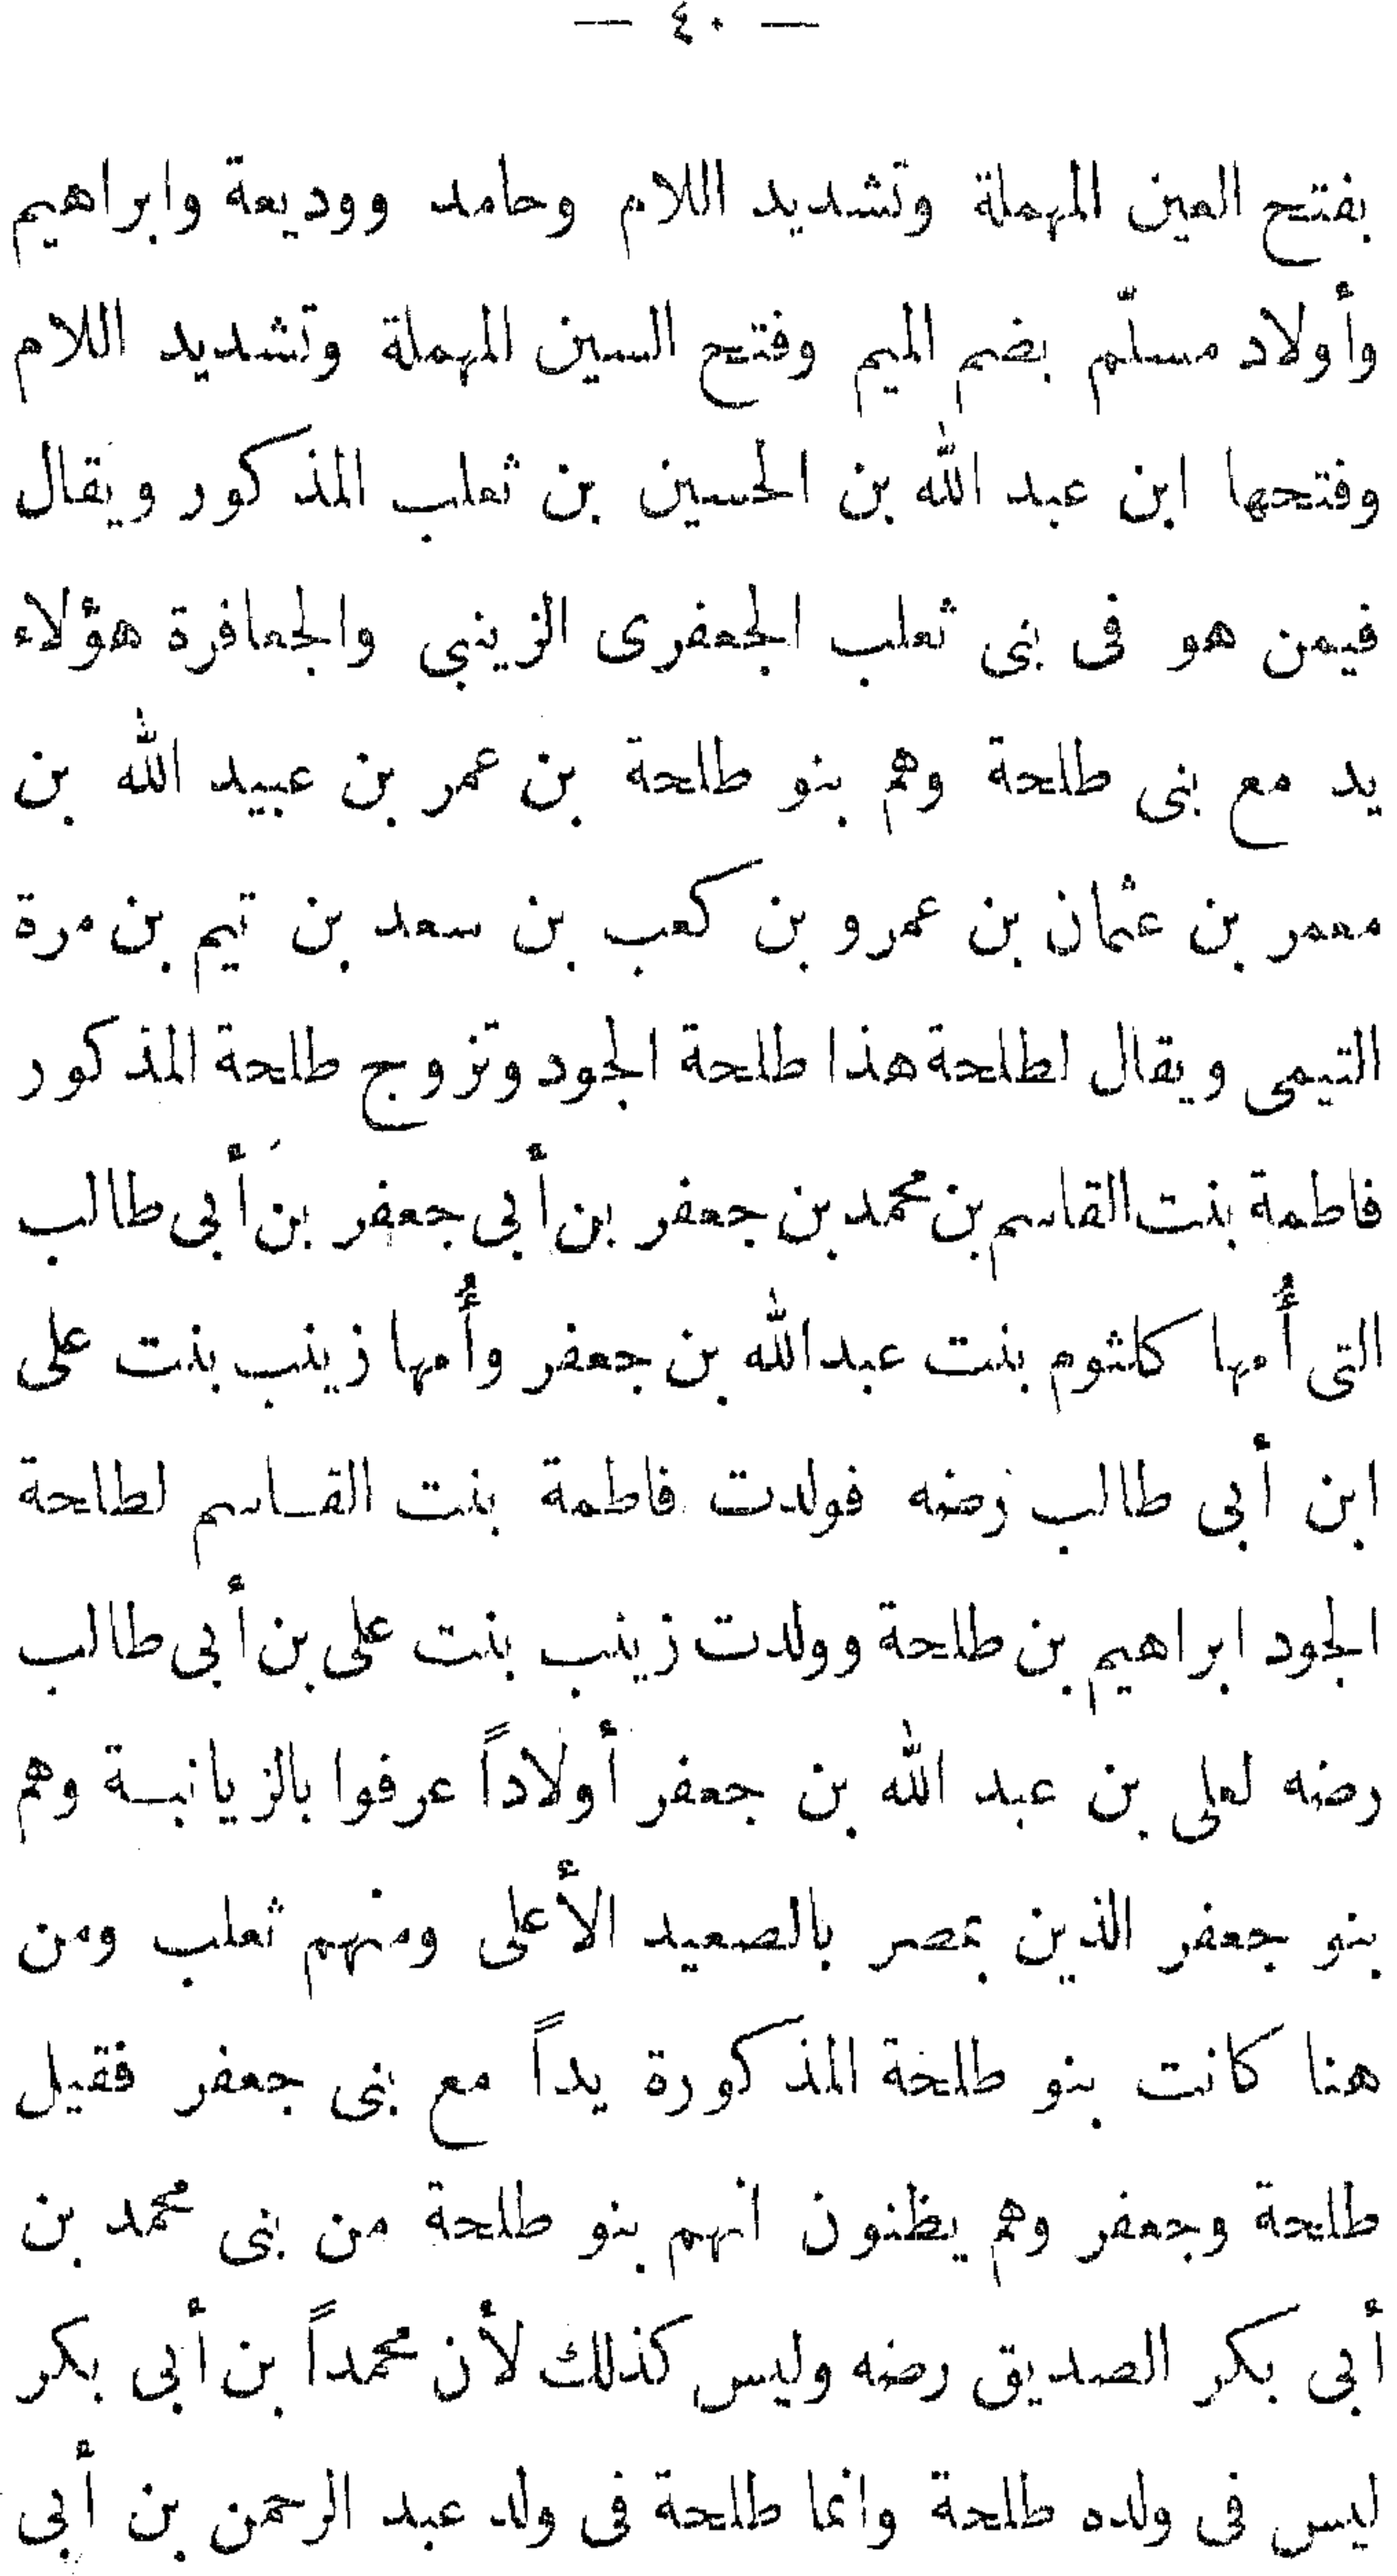 — ٤٠ —
بفتح العين المهملة وتشديد اللام وحامد ووديعة وابراهيم
وأولاد مسلّم بضم الميم وفتح السين المهملة وتشديد اللام
وفتحها ابن عبد الله بن الحسين بن ثعلب المذكور ويقال
فيمن هو فى بنى ثعلب الجعفرى الزينبى والجعافرة هؤلاء
يد مع بنى طلحة وهم بنو طلحة بن عمر بن عبيد الله بن
معمر بن عثمان بن عمرو بن كعب بن سعد بن تيم بن مرة
التيمى ويقال لطلحة هذا طلحة الجود وتزوج طلحة المذكور
فاطمة بنت القاسم بن محمد بن جعفر بن أبى جعفر بن أبى طالب
التى أُمها كلثوم بنت عبد الله بن جعفر وأُمها زينب بنت على
ابن أبى طالب رضه فولدت فاطمة بنت القاسم لطلحة
الجود ابراهيم بن طلحة وولدت زينب بنت على بن أبى طالب
رضه لعلى بن عبد الله بن جعفر أولاداً عرفوا بالزيانبة وهم
بنو جعفر الذين بمصر بالصعيد الأعلى ومنهم ثعلب ومن
هنا كانت بنو طلحة المذكورة يداً مع بنى جعفر فقيل
طلحة وجعفر وهم يظنون انهم بنو طلحة من بنى محمد بن
أبى بكر الصديق رضه وليس كذلك لأن محمداً بن أبى بكر
ليس فى ولده طلحة وانما طلحة فى ولد عبد الرحمن بن أبى